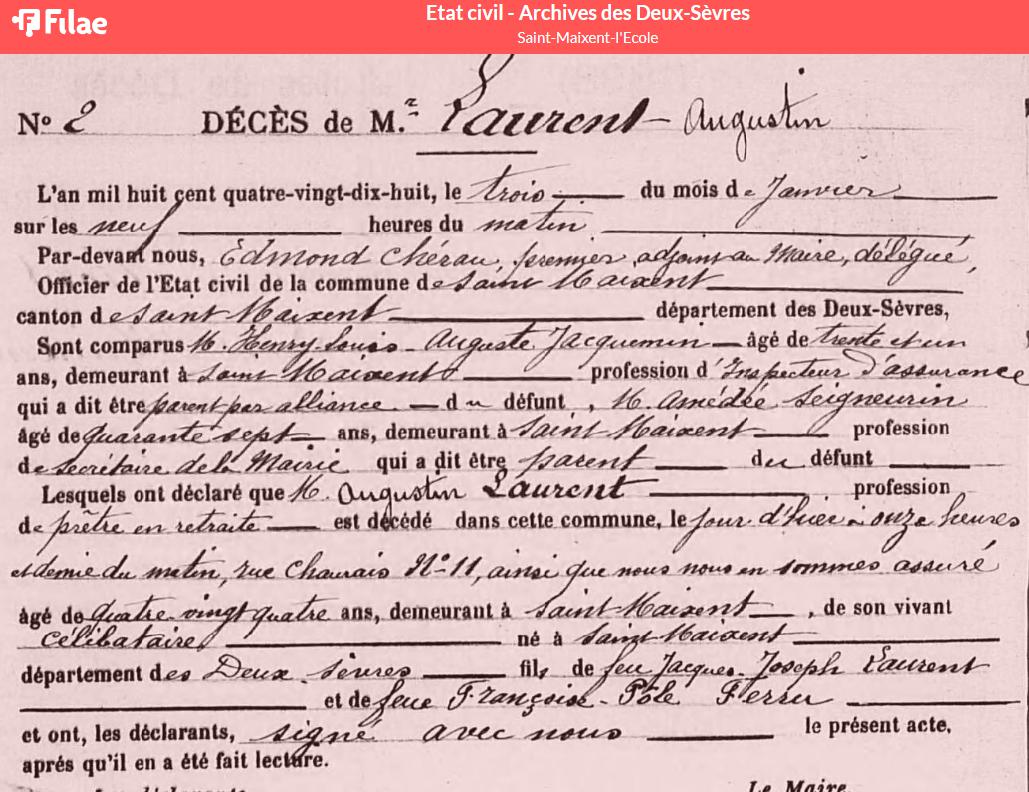 Filae
Etat civil - Archives des Deux-Sèvres
Saint-Maixent-l'Ecole
N° 2 DÉCÈS de M.r Laurent Augustin
L'an mil huit cent quatre-vingt-dix-huit, le trois du mois de Janvier
sur les neuf heures du matin
Par-devant nous, Edmond Chérau, premier adjoint au Maire, délégué,
Officier de l'Etat civil de la commune de Saint Maixent
canton de Saint Maixent département des Deux-Sèvres,
Sont comparus M. Henry-Louis-Auguste Jacquemin âgé de trente et un
ans, demeurant à Saint Maixent profession d'Inspecteur d'assurance
qui a dit être parent par alliance du défunt, M. Amédée Seigneurin
âgé de quarante sept ans, demeurant à Saint Maixent profession
de secrétaire de la Mairie qui a dit être parent du défunt
Lesquels ont déclaré que M. Augustin Laurent profession
de prêtre en retraite est décédé dans cette commune, le jour d'hier à onze heures
et demie du matin, rue Chauvais N° 11, ainsi que nous nous en sommes assuré
âgé de quatre vingt quatre ans, demeurant à Saint Maixent, de son vivant
célibataire né à Saint Maixent
département des Deux Sèvres fils de feu Jacques-Joseph Laurent
et de feue Françoise-Pôle Ferru
et ont, les déclarants, signé avec nous le présent acte,
aprés qu'il en a été fait lecture.
Le Maire,